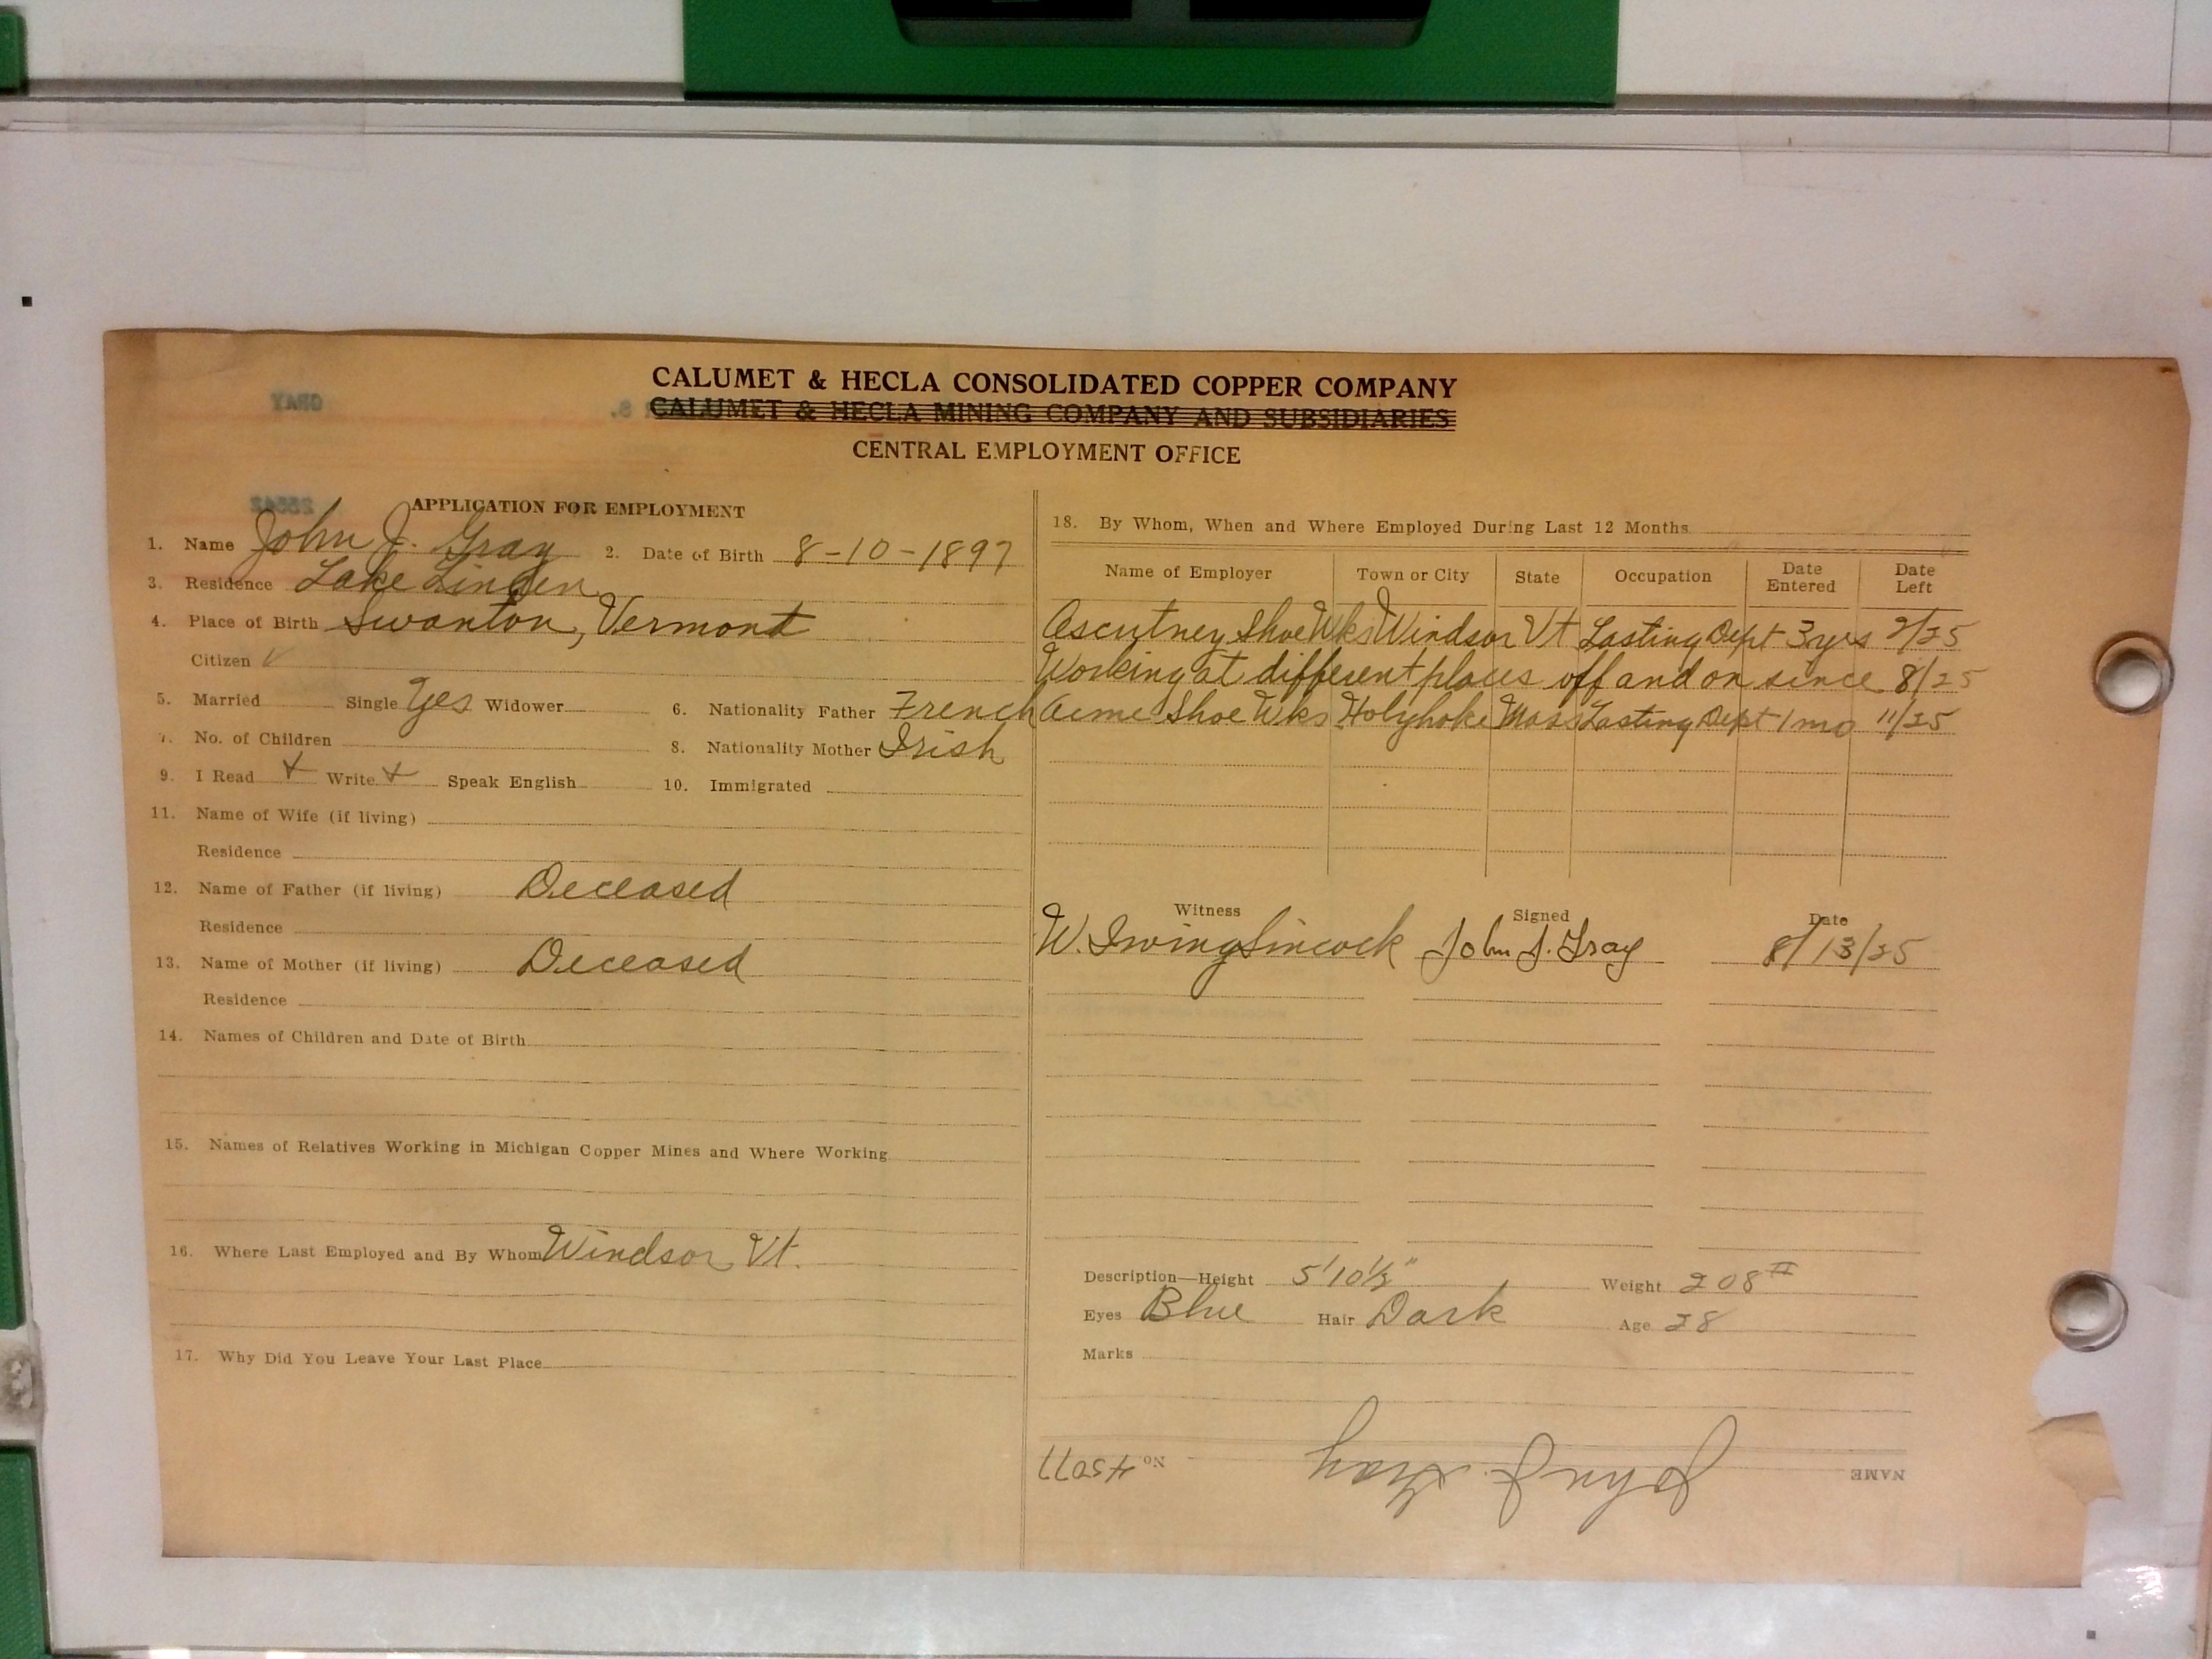 CALUMET & HECLA CONSOLIDATED COPPER COMPANY
CALUMET & HECLA MINING COMPANY AND SUBSIDIARIES
CENTRAL EMPLOYMENT OFFICE
GRAY
APPLICATION FOR EMPLOYMENT
1. Name John J. Gray 2. Date of Birth 8-10-1897
3. Residence Lake Linden
4. Place of Birth Swanton, Vermont
Citizen ✓
5. Married Single Yes Widower 6. Nationality Father French
7. No. of Children 8. Nationality Mother Irish
9. I Read + Write + Speak English 10. Immigrated
11. Name of Wife (if living)
Residence
12. Name of Father (if living) Deceased
Residence
13. Name of Mother (if living) Deceased
Residence
14. Names of Children and Date of Birth
15. Names of Relatives Working in Michigan Copper Mines and Where Working
16. Where Last Employed and By Whom Windsor, Vt.
17. Why Did You Leave Your Last Place
18. By Whom, When and Where Employed During Last 12 Months
Name of Employer Town or City State Occupation Date Entered Date Left
Ascutney Shoe Wks Windsor Vt Lasting Dept 3 yrs 2/25
Working at different places off and on since 8/25
Acme Shoe Wks Holyhoke Mass Lasting Dept 1 mo 11/25
Witness Signed Date
W. Irving Sincock John J. Gray 8/13/25
Description—Height 5'10½" Weight 208
Eyes Blue Hair Dark Age 28
Marks
NAME John J. Gray No 45077